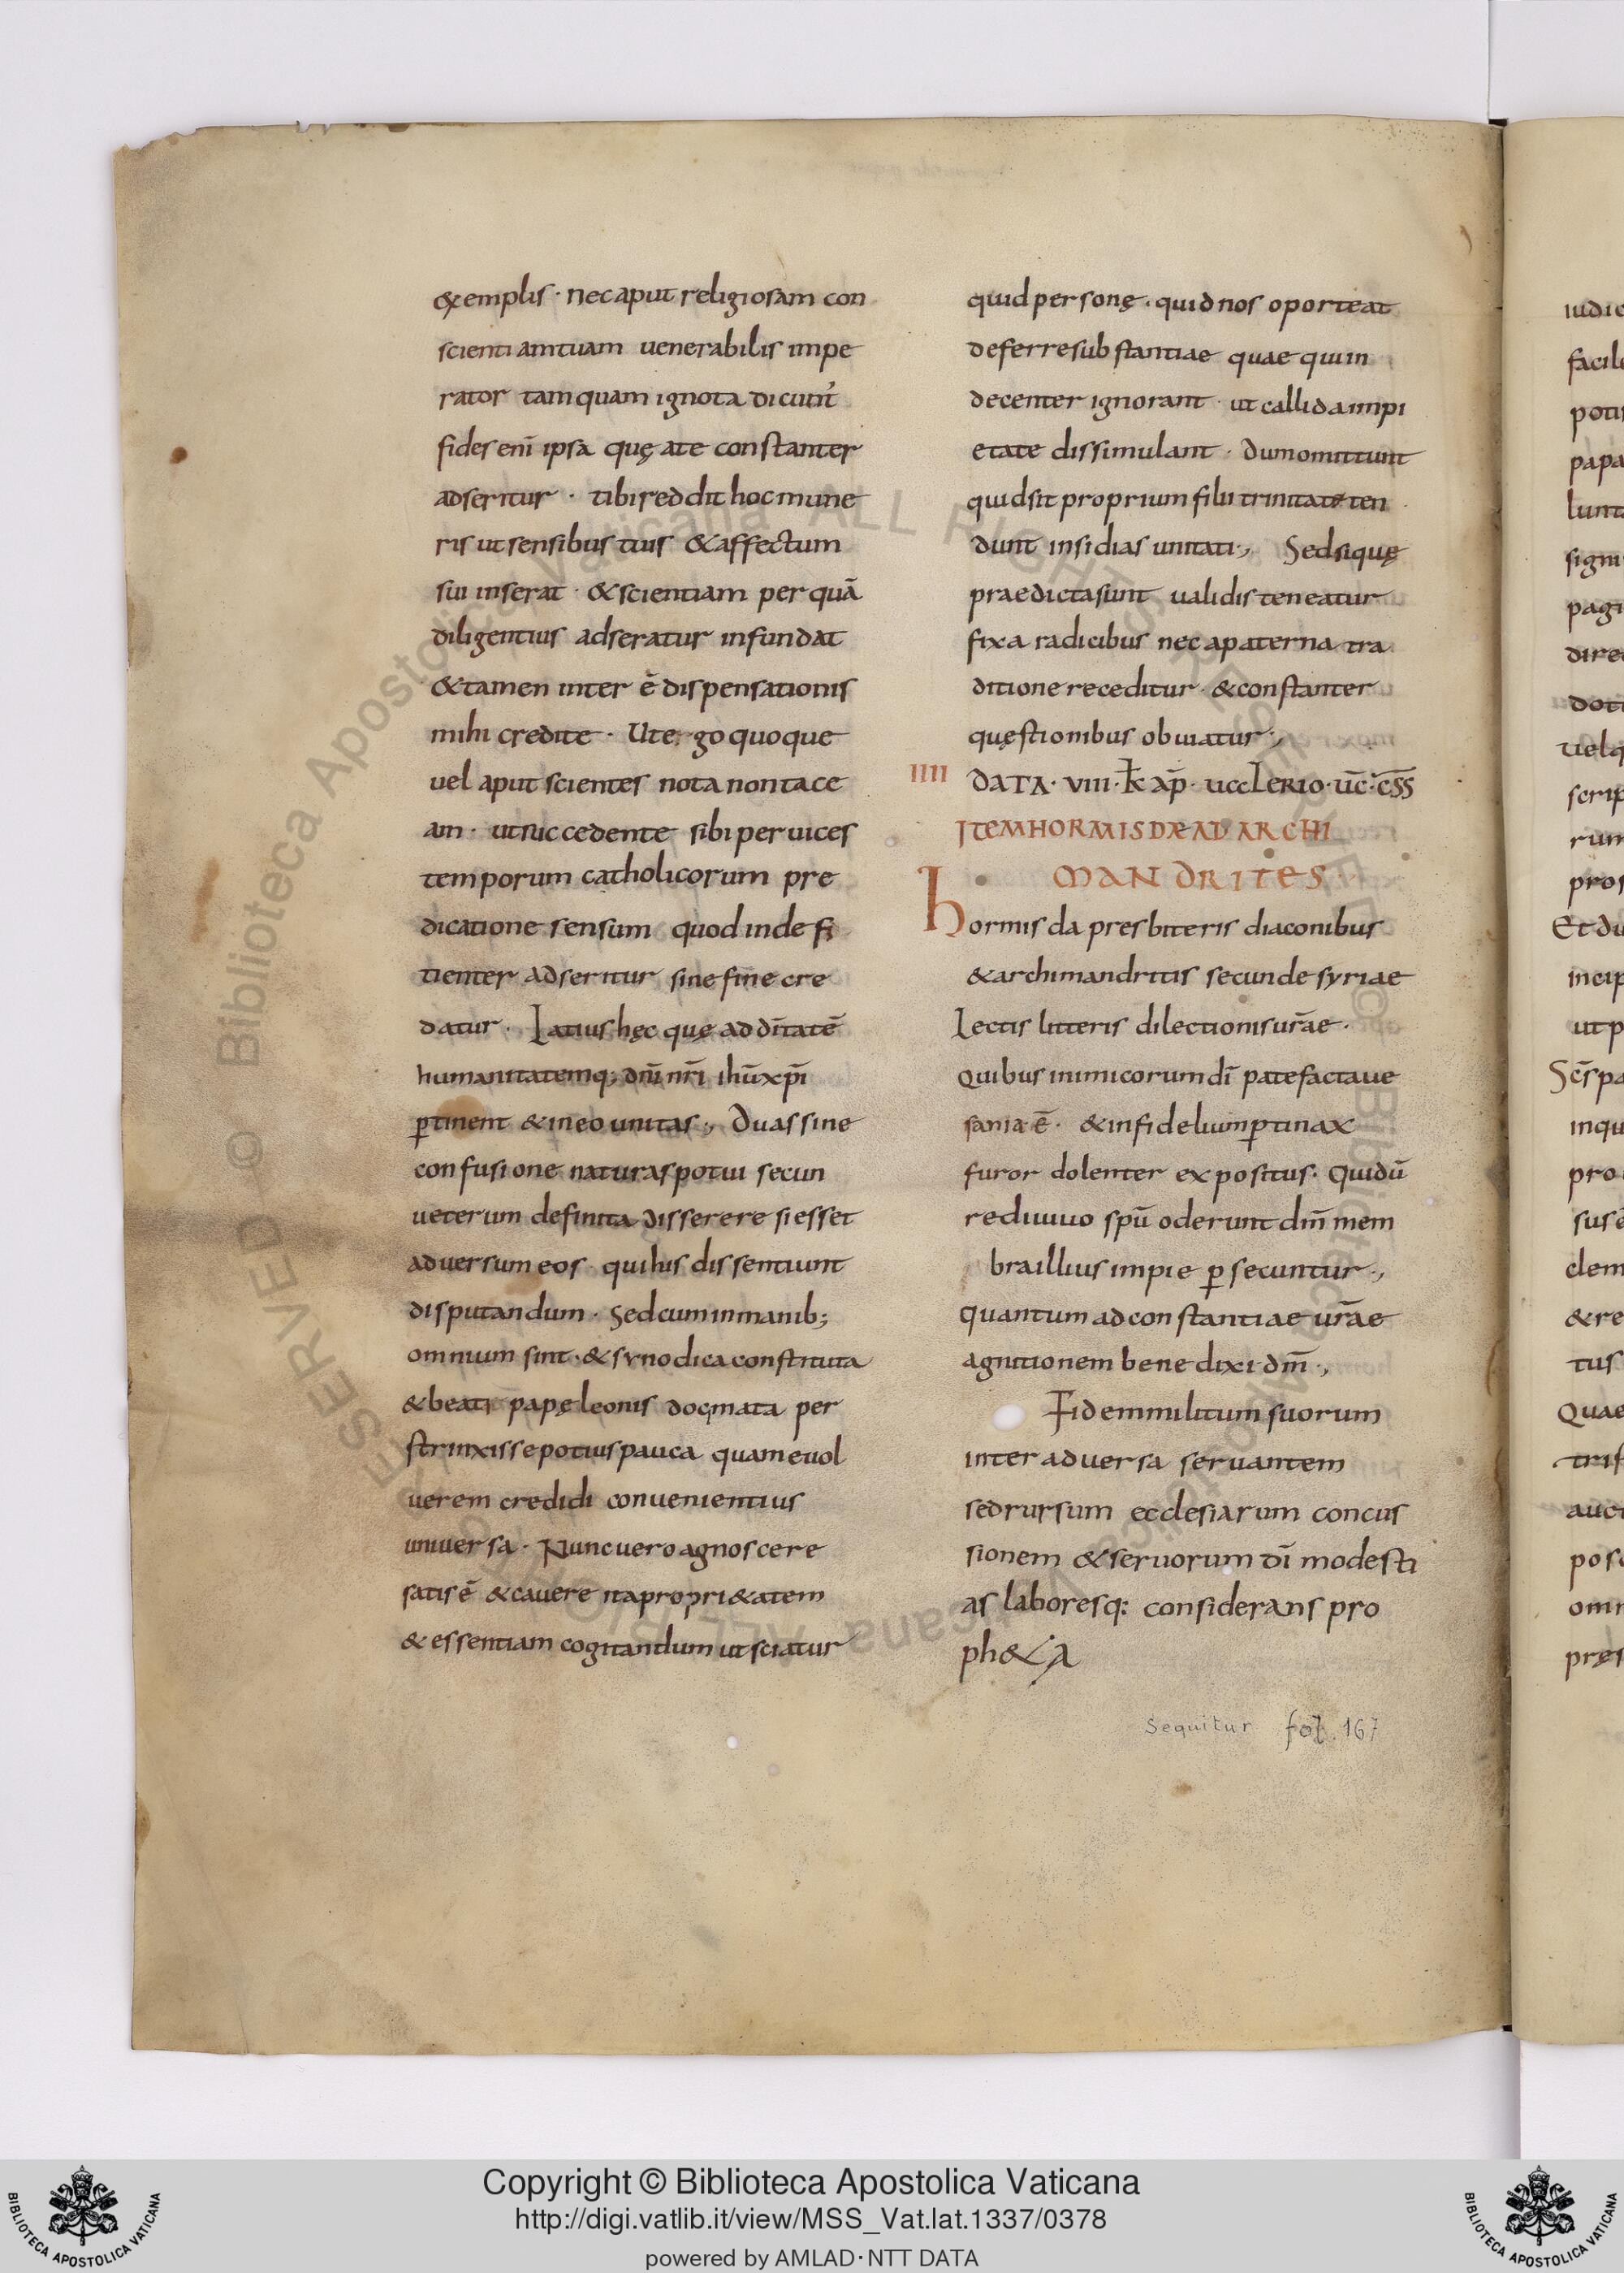 exemplis · nec aput religiosam con
scientiam tuam uenerabilis impe
rator tamquam ignota dicunt̄
fides enī ipsa quę a te constanter
adseritur · tibi reddit hoc mune
ris ut sensibus tuis & affectum
sui inserat · & scientiam per quā
diligentius adseratur infundat
& tamen inter ē dispensationis
mihi credite · Ut ergo quoque
uel aput scientes nota non tace
am · ut succedente sibi per uices
temporum catholicorum pre
dicatione sensum quod inde fi
tienter adseritur sine fine cre
datur · Latius hęc quę ad dītatē
humanitatemq; dn̄i nr̄i ihū xp̄i
ꝑtinent & in eo unitas ., Duas sine
confusione naturas potui secun
ueterum definita disserere si esset
aduersum eos · qui his dissentiunt
disputandum · Sed cum in manib;
omnium sint · & synodica constituta
& beati papę leonis dogmata per
strinxisse potius pauca quam euol
uerem credidi conuenientius
uniuersa · Nunc uero agnoscere
satis ē & cauere ita propri&atem
& essentiam cogitandum ut sciatur
quid personę · quid nos oporteat
deferre substantiae quae qui in
decenter ignorant · ut callida impi
etate dissimulant · dum omittunt
quid sit proprium filii trinitate ten
dunt insidias unitati ., Sed si quę
praedicta sunt ualidis teneatur
fixa radicibus nec a paterna tra
ditione receditur · & constanter
quęstionibus obuiatur .,
IIII DATA · VIII · K̄ AP̄ · uccLERIO · ūc · c̄s̄s̄
ITEM HORMISDÆ AD ARCHI
MANDRITES ·
hormisda presbiteris diaconibus
& archimandritis secunde syriae
Lectis litteris dilectionis ur̄ae ·
Quibus inimicorum dī patefacta ue
sania ē · & infidelium ꝑtinax
furor dolenter expositus · Quidū
rediuiuo spū oderunt dn̄m mem
bra illius impie ꝑsecuntur .,
Quantum ad constantiae ur̄ae
agnitionem benedixi dn̄m .,
Fidem militum suorum
inter aduersa seruantem
sed rursum ecclesiarum concus
sionem & seruorum dī modesti
as laboresq: considerans pro
ph&A
Sequitur fol. 167
iudic
facile
poti
papa
lunt
signi
pagi
dire
doti
uel q
scrip
rum
pros
Et du
incip
ut p
Sc̄s pa
inqu
pro
sus
clem
& re
tus
Quae
tris
auct
posc
omn
pręs
Copyright © Biblioteca Apostolica Vaticana
http://digi.vatlib.it/view/MSS_Vat.lat.1337/0378
powered by AMLAD·NTT DATA
BIBLIOTECA APOSTOLICA VATICANA
BIBLIOTECA APOSTOLICA VATICANA